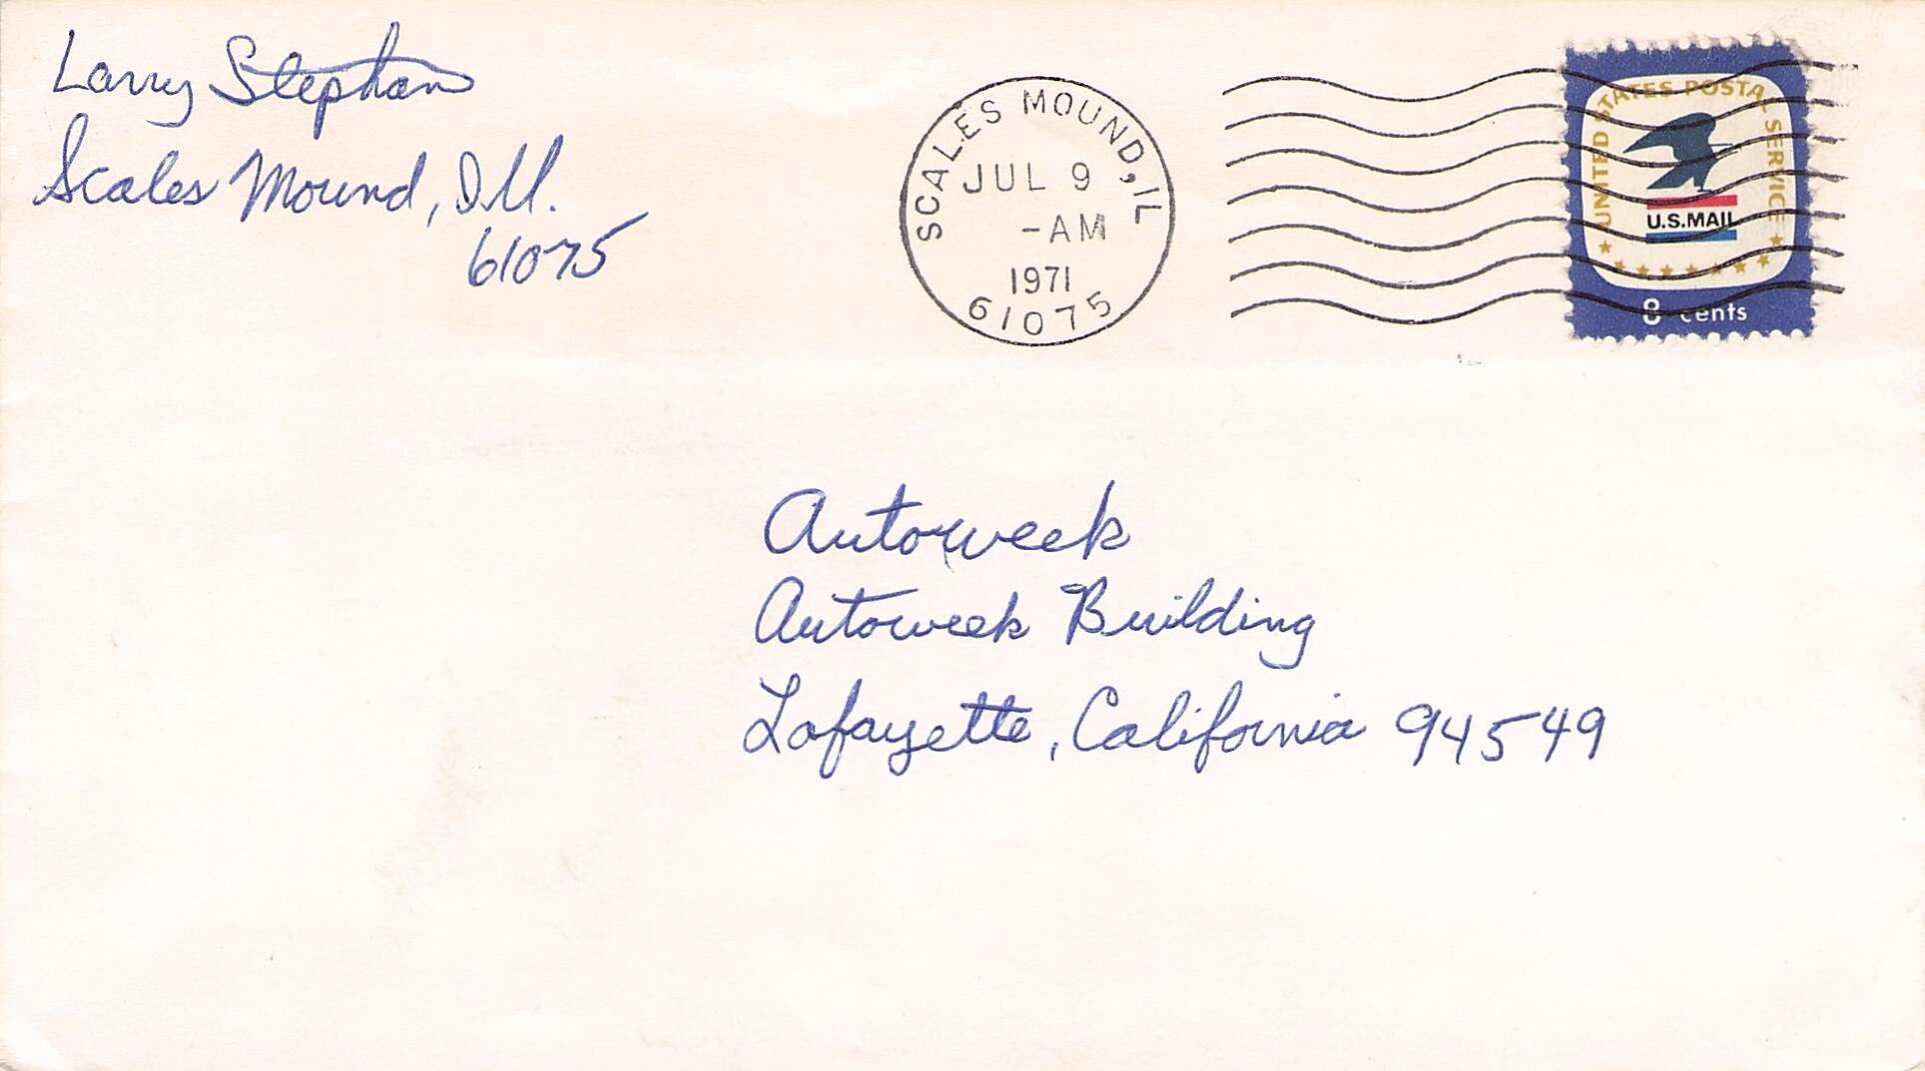 Larry Stephan
Scales Mound, Ill.
61075
SCALES MOUND, IL
JUL 9
-AM
1971
61075
UNITED STATES POSTAL SERVICE
U.S.MAIL
8 cents
Autoweek
Autoweek Building
Lafayette, California 94549